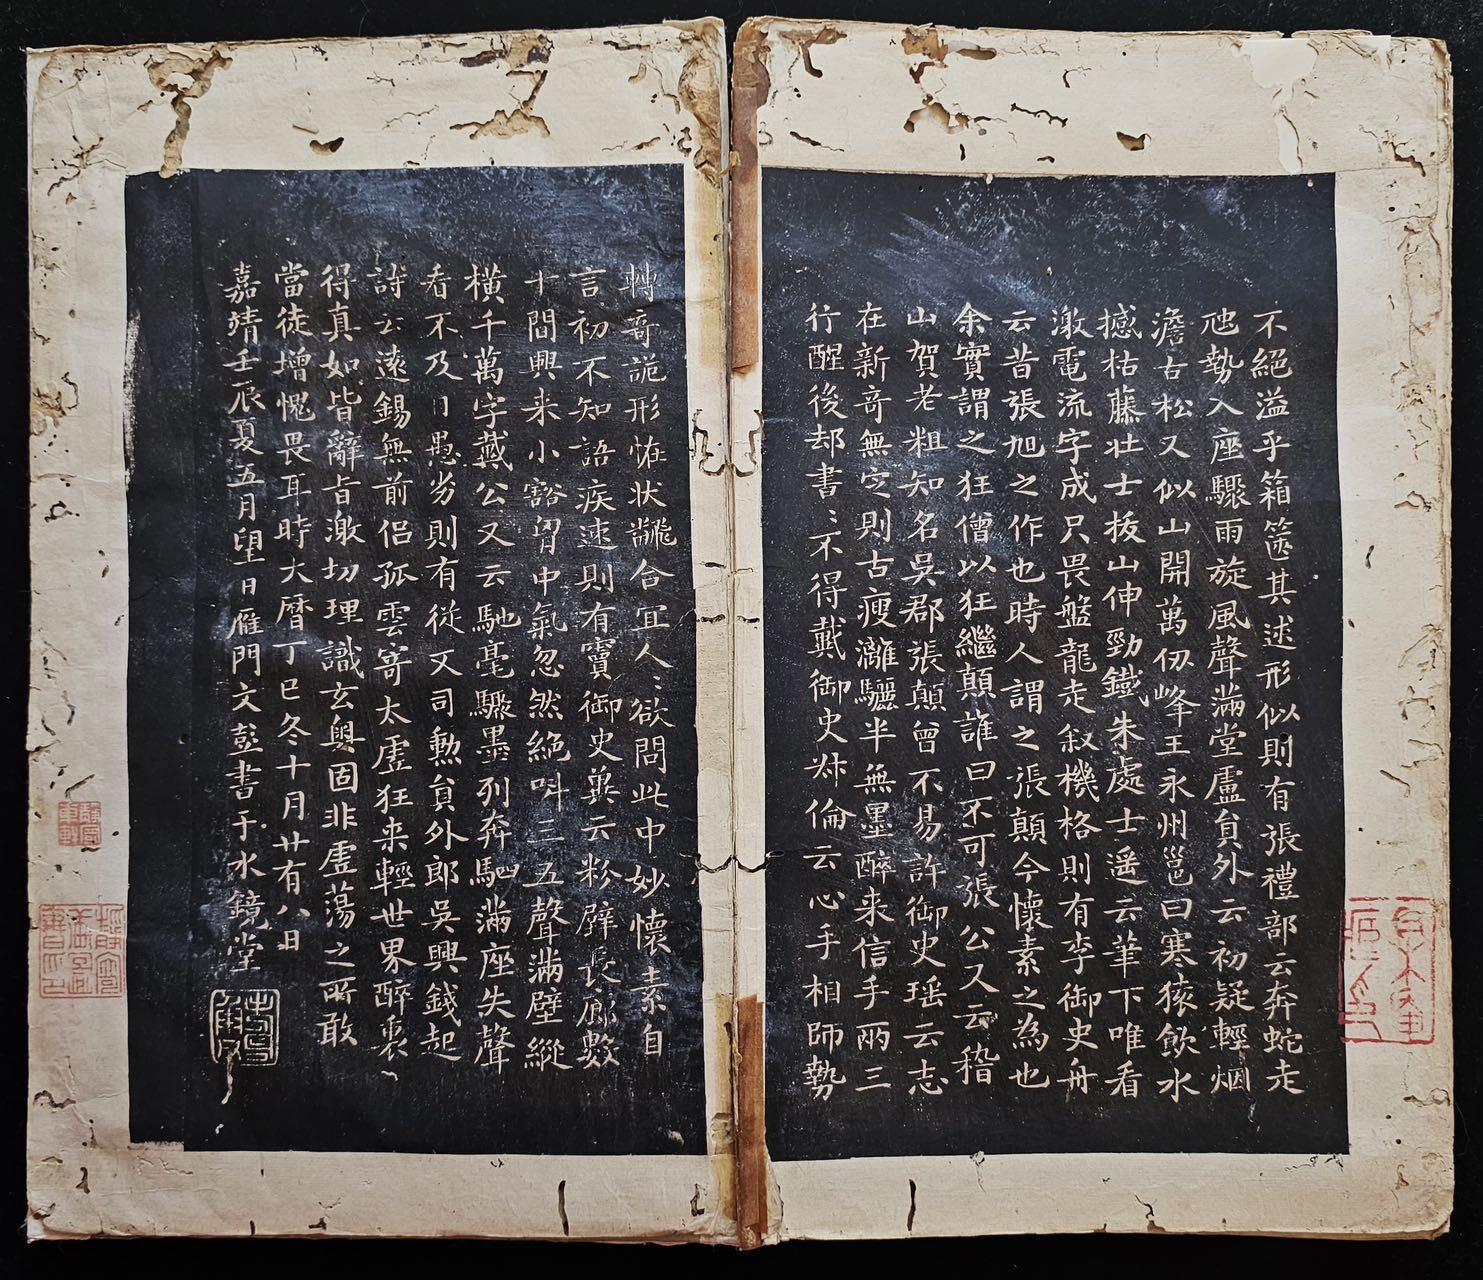 不絕溢乎箱篋其述形似則有張禮部云奔蛇走
虺勢入座驟雨旋風聲滿堂盧負外云初疑輕烟
澹古松又似山開萬仞峰王永州邕曰寒猿飲水
撼枯藤壮士拔山伸勁鐵朱處士遥云筆下唯看
激電流字成只畏盤龍走叙機格則有李御史舟
云昔張旭之作也時人謂之張顛今懷素之為也
余實謂之狂僧以狂繼顛誰曰不可張公又云稽
山賀老粗知名吳郡張顛曾不易許御史瑶云志
在新竒無定則古瘦灕驪半無墨醉来信手兩三
行醒後却書〻不得戴御史叔倫云心手相師勢
轉竒詭形怪状飜合宜人〻欲問此中妙懷素自
言初不知語疾速則有竇御史冀云粉壁長廊數
十間興来小豁胷中氣忽然絕叫三五聲滿壁縱
橫千萬字戴公又云馳毫驟墨列奔駟滿座失聲
看不及目愚劣則有從父司勲負外郎吳興錢起
詩云遠錫無前侣孤雲寄太虚狂来輕世界醉裏
得真如皆辭旨激切理識玄奥固非虚蕩之所敢
當徒增愧畏耳時大曆丁巳冬十月廿有八日
嘉靖壬辰夏五月望日雁門文彭書于水鏡堂